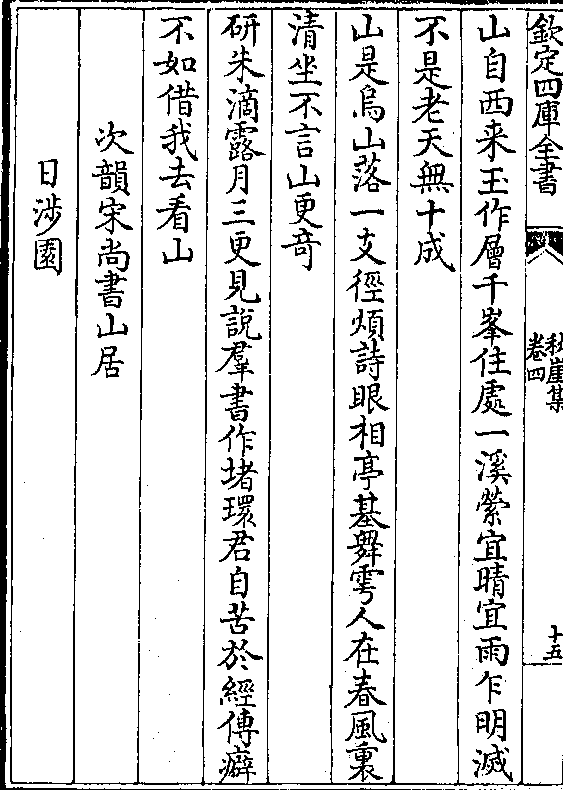 欽定四庫全書
秋崖集
卷四
十五
山自西来玉作層千峯住處一溪縈宜晴宜雨乍明滅
不是老天無十成
山是烏山落一支徑煩詩眼相亭基舞雩人在春風裏
清坐不言山更竒
研朱滴露月三更見說羣書作堵環君自苦於經傳癖
不如借我去看山
次韻宋尚書山居
日涉園